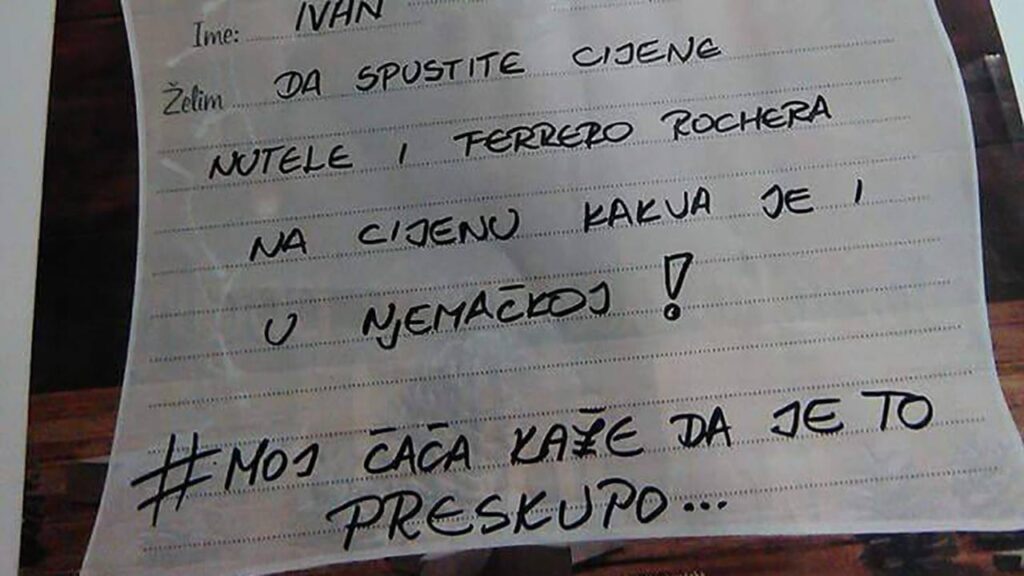 Ime: IVAN
Želim DA SPUSTITE CIJENE
NUTELE I FERRERO ROCHERA
NA CIJENU KAKVA JE I
U NJEMAČKOJ!
#MOJ ČAČA KAŽE DA JE TO
PRESKUPO...